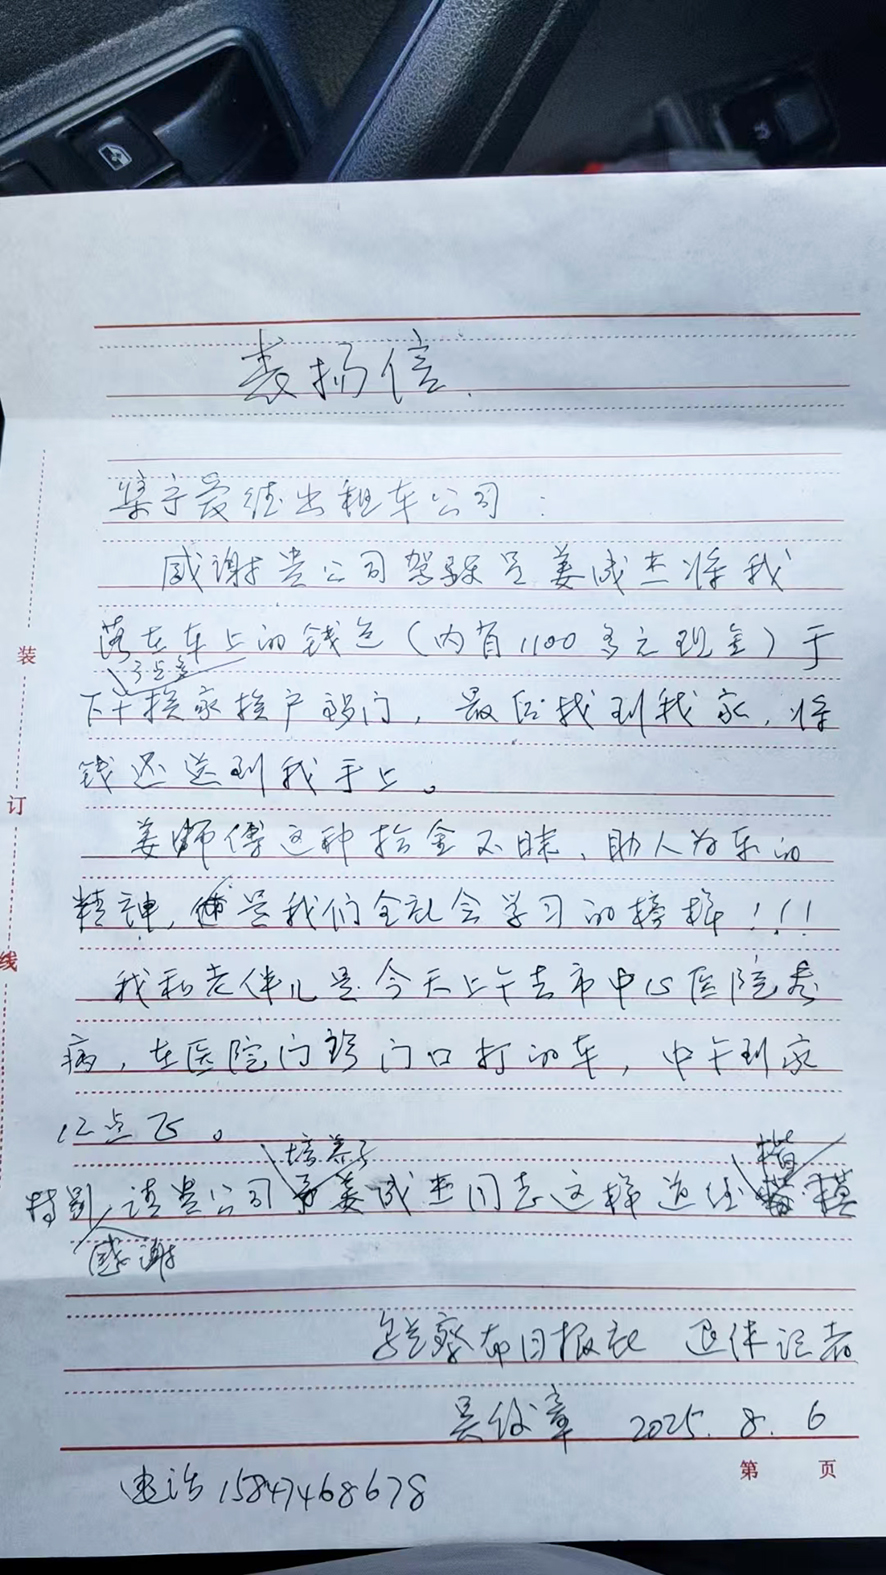 表扬信
集宁爱德出租车公司：
感谢贵公司驾驶员姜成杰将我
落在车上的钱包（内有1100多元现金）于
3点多
下午挨家挨户敲门，最后找到我家，将
钱还送到我手上。
姜师傅这种拾金不昧、助人为乐的
精神，是我们全社会学习的榜样！！！
我和老伴儿是今天上午去市中心医院看
病，在医院门诊门口打的车，中午到家
12点75。
培养了
特别 请贵公司 姜成杰同志这样道德 楷模
感谢
乌兰察布日报社 退休记者
吴 章 2025.8.6
电话15847468678
装
订
线
第 页